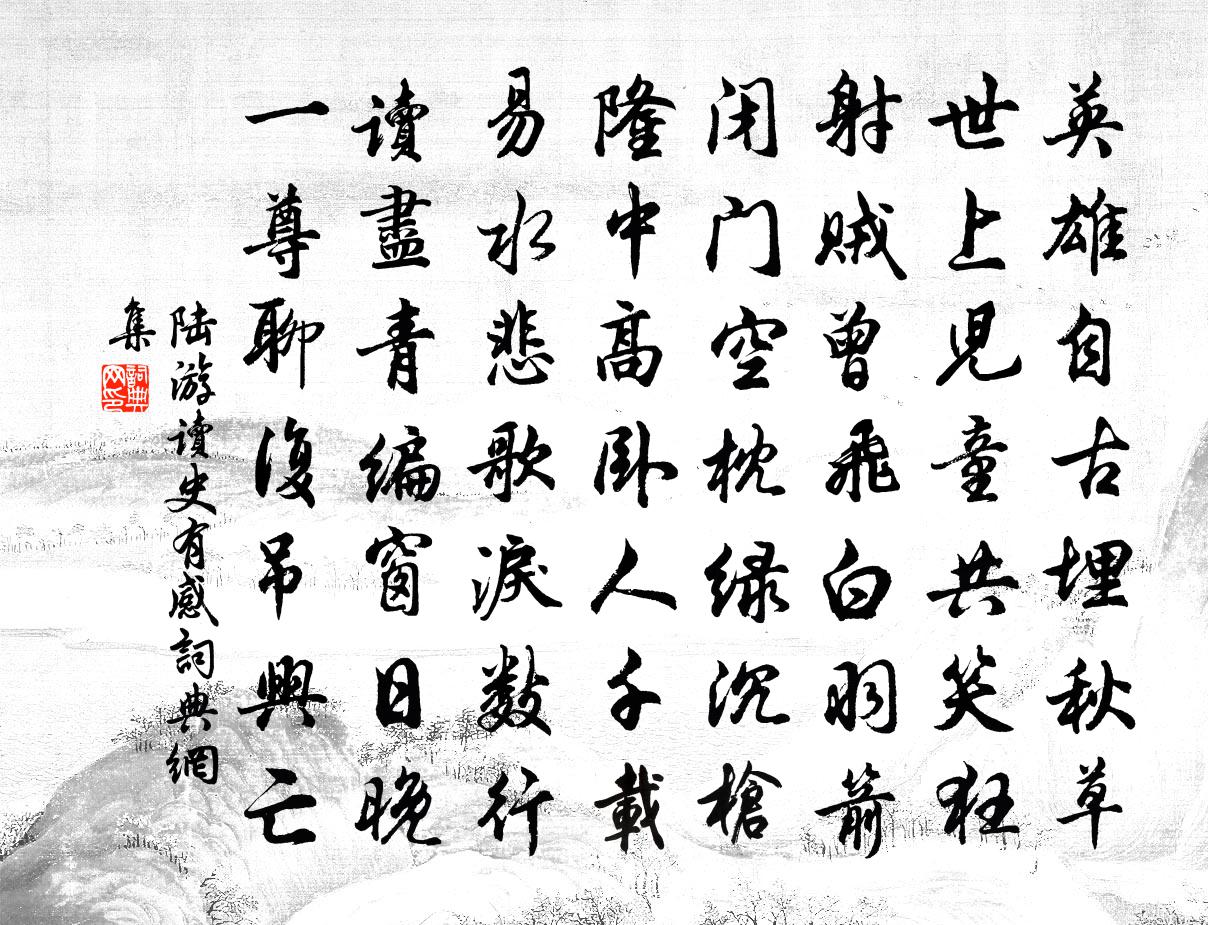 英雄自古埋秋草
世上児童共笑狂
射賊曾飛白羽箭
闭门空枕绿沉槍
隆中高卧人千載
易水悲歌淚数行
讀盡青编窗日晚
一尊聊復吊興亡
陆游读史有感詞典網
集
詞典網印